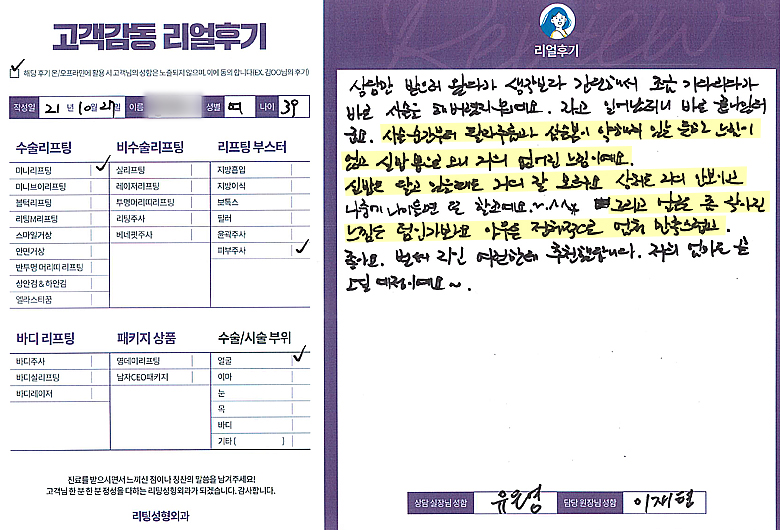 고객감동 리얼후기
해당 후기 온/오프라인에 활용 시 고객님의 성함은 노출되지 않으며, 이에 동의 합니다(EX. 김OO님의 후기)
작성일 21 년 10 월 27 일 이름 성별 여 나이 39
수술리프팅
미니리프팅
미니브이리프팅
블턱리프팅
리팅M리프팅
스마일거상
안면거상
반투명 머리띠 리프팅
상안검 & 하안검
엘라스티꿈
비수술리프팅
실리프팅
레이저리프팅
투명머리띠리프팅
리팅주사
베네핏주사
리프팅 부스터
지방흡입
지방이식
보톡스
필러
윤곽주사
피부주사
바디 리프팅
바디주사
바디실리프팅
바디레이저
패키지 상품
영데이리프팅
남자CEO패키지
수술/시술 부위
얼굴
이마
눈
목
바디
기타 ( )
진료를 받으시면서 느끼신 점이나 칭찬의 말씀을 남겨주세요!
고객님 한 분 한 분 정성을 다하는 리팅성형외과가 되겠습니다. 감사합니다.
리팅성형외과
Review
리얼후기
상담만 받으러 왔다가 생각보다 조금 기다리다가
바로 시술을 해버렸지 뭐예요. 라고 일어났더니 바로 끝나있더
군요. 시술순간부터 팔자주름과 심술봉이 약해져 있는 듯하고 느낌이
없고 실밥 몸으로 거의 없어진 느낌이예요.
실밥은 달고 있는데도 거의 잘 모르고 상처도 거의 안보이고
나중에 나이들면 또 할꼬예요~.^^ 그리고 남은 존 살아진
느낌도 덤인가봐요 아무튼 전체적으로 엄청 만족스럽고
좋아요. 벌써 지인 여럿한테 추천했답니다. 저희 엄마도 곧
오실 예정이예요~.
상담 실장님 성함 유은영 담당 원장님 성함 이재혁